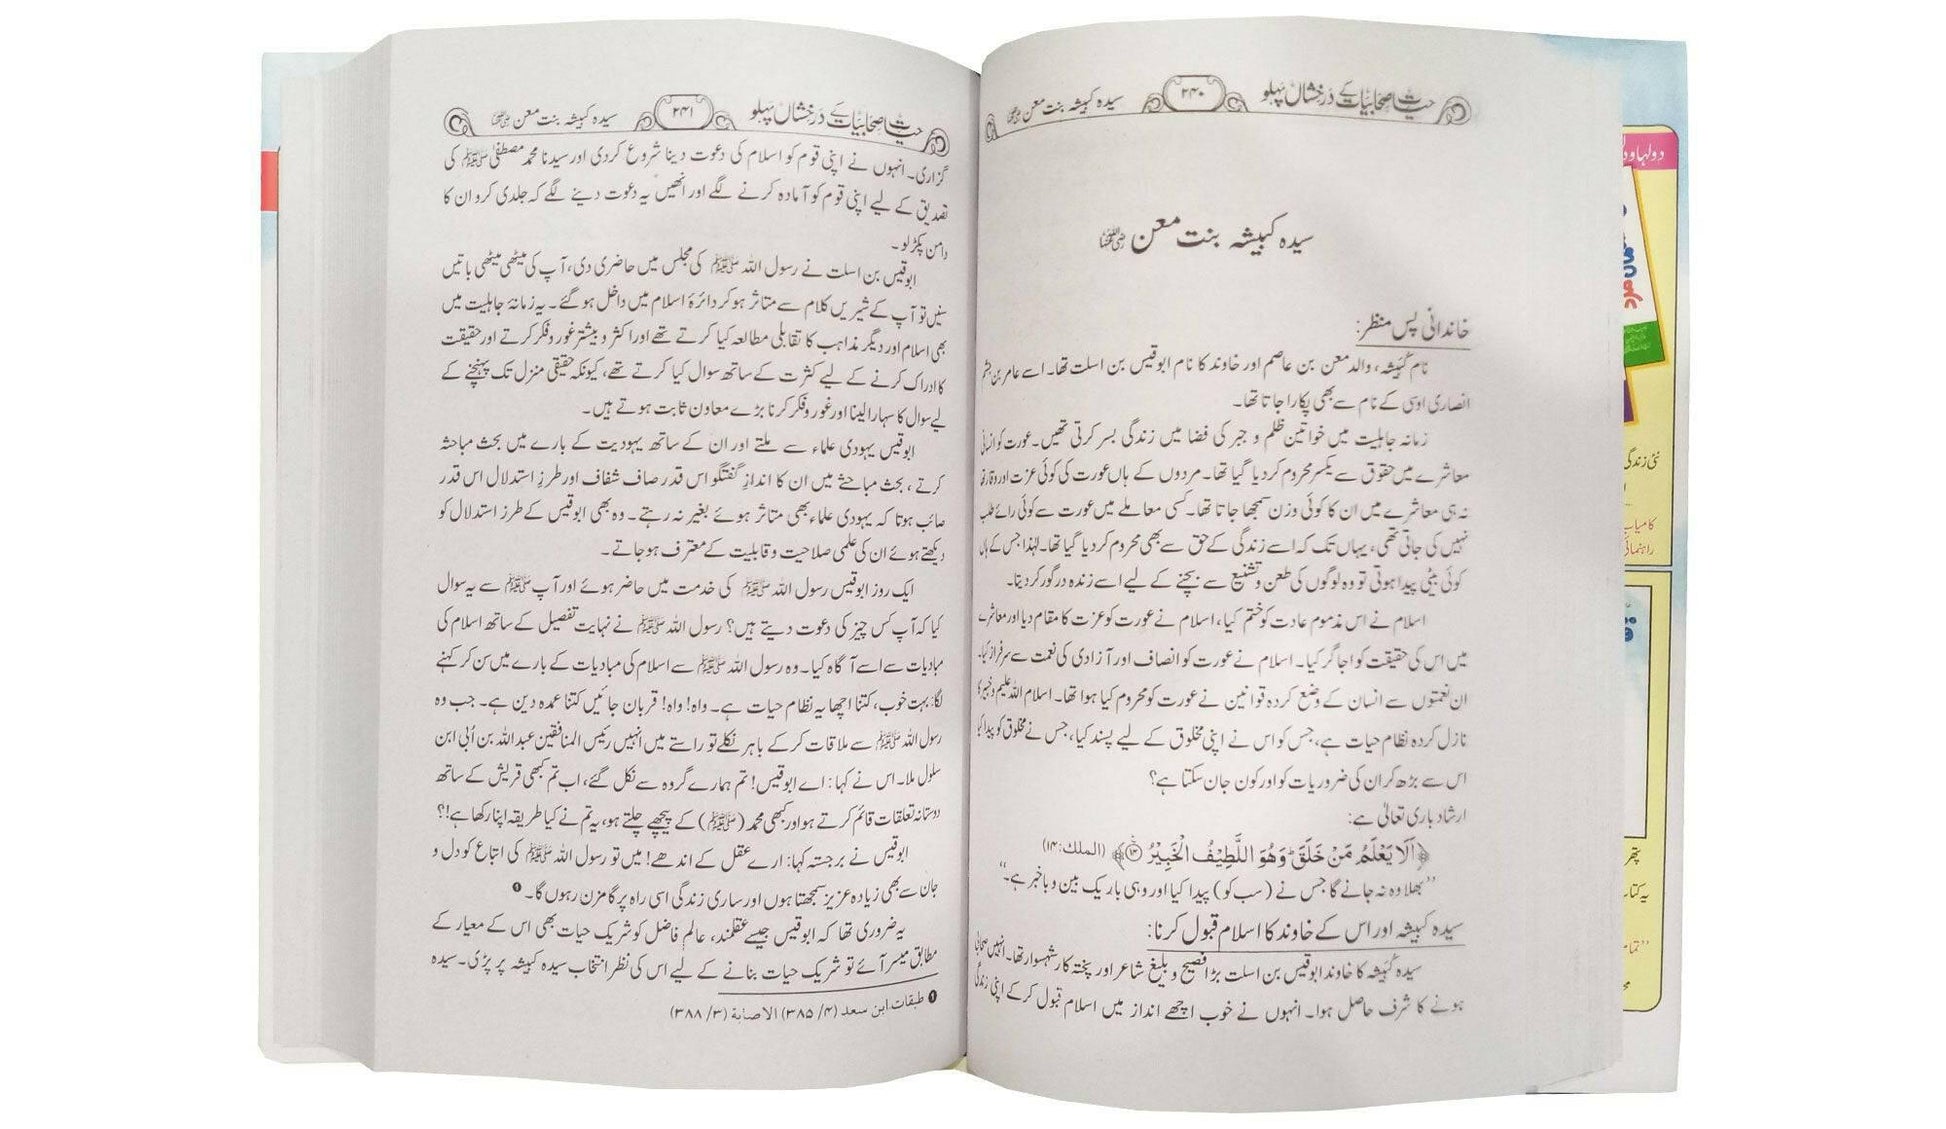 حیات صحابیات کے درخشاں پہلو ۲۴۰ سیدہ کبیشہ بنت معن رضی اللہ عنہا
سیدہ کبیشہ بنت معن رضی اللہ عنہا
خاندانی پس منظر:
نام کُبَیشہ، والد معن بن عاصم اور خاوند کا نام ابوقیس بن اسلت تھا۔ اسے عامر بن جشم
انصاری اوسی کے نام سے بھی پکارا جاتا تھا۔
زمانہ جاہلیت میں خواتین ظلم و جبر کی فضا میں زندگی بسر کرتی تھیں۔ عورت کو انسانی
معاشرے میں حقوق سے یکسر محروم کردیا گیا تھا۔ مردوں کے ہاں عورت کی کوئی عزت اور وقار تھا
نہ ہی معاشرے میں ان کا کوئی وزن سمجھا جاتا تھا۔ کسی معاملے میں عورت سے کوئی رائے طلب
نہیں کی جاتی تھی، یہاں تک کہ اسے زندگی کے حق سے بھی محروم کردیا گیا تھا۔ لہٰذا جس کے ہاں
کوئی بیٹی پیدا ہوتی تو وہ لوگوں کی طعن و تشنیع سے بچنے کے لیے اسے زندہ درگور کردیتا۔
اسلام نے اس مذموم عادت کو ختم کیا، اسلام نے عورت کو عزت کا مقام دیا اور معاشرے
میں اس کی حقیقت کو اجاگر کیا۔ اسلام نے عورت کو انصاف اور آزادی کی نعمت سے سرفراز کیا۔
ان نعمتوں سے انسان کے وضع کردہ قوانین نے عورت کو محروم کیا ہوا تھا۔ اسلام اللہ علیم و خبیر کا
نازل کردہ نظام حیات ہے، جس کو اس نے اپنی مخلوق کے لیے پسند کیا، جس نے مخلوق کو پیدا کیا
اس سے بڑھ کر ان کی ضروریات کو اور کون جان سکتا ہے؟
ارشاد باری تعالیٰ ہے:
﴿اَلَا یَعْلَمُ مَنْ خَلَقَ وَهُوَ اللَّطِیْفُ الْخَبِیْرُ ۱۴﴾ (الملک:۱۴)
”بھلا وہ نہ جانے گا جس نے (سب کو) پیدا کیا اور وہی باریک بین و باخبر ہے۔“
سیدہ کبیشہ اور اس کے خاوند کا اسلام قبول کرنا:
سیدہ کُبَیشہ کا خاوند ابوقیس بن اسلت بڑا فصیح و بلیغ شاعر اور پختہ کار شہسوار تھا۔ انہیں صحابی
ہونے کا شرف حاصل ہوا۔ انہوں نے خوب اچھے انداز میں اسلام قبول کرکے اپنی زندگی
حیات صحابیات کے درخشاں پہلو ۲۴۱ سیدہ کبیشہ بنت معن رضی اللہ عنہا
گزاری۔ انہوں نے اپنی قوم کو اسلام کی دعوت دینا شروع کردی اور سیدنا محمد مصطفیٰ ﷺ کی
تصدیق کے لیے اپنی قوم کو آمادہ کرنے لگے اور انھیں یہ دعوت دینے لگے کہ جلدی کرو ان کا
دامن پکڑ لو۔
ابوقیس بن اسلت نے رسول اللہ ﷺ کی مجلس میں حاضری دی، آپ کی میٹھی میٹھی باتیں
سنیں تو آپ کے شیریں کلام سے متاثر ہوکر دائرۂ اسلام میں داخل ہوگئے۔ یہ زمانۂ جاہلیت میں
بھی اسلام اور دیگر مذاہب کا تقابلی مطالعہ کیا کرتے تھے اور اکثر و بیشتر غور و فکر کرتے اور حقیقت
کا ادراک کرنے کے لیے کثرت کے ساتھ سوال کیا کرتے تھے، کیونکہ حقیقی منزل تک پہنچنے کے
لیے سوال کا سہارا لینا اور غور و فکر کرنا بڑے معاون ثابت ہوتے ہیں۔
ابوقیس یہودی علماء سے ملتے اور ان کے ساتھ یہودیت کے بارے میں بحث مباحثہ
کرتے، بحث مباحثے میں ان کا اندازِ گفتگو اس قدر صاف شفاف اور طرزِ استدلال اس قدر
صائب ہوتا کہ یہودی علماء بھی متاثر ہوئے بغیر نہ رہتے۔ وہ بھی ابوقیس کے طرز استدلال کو
دیکھتے ہوئے ان کی علمی صلاحیت و قابلیت کے معترف ہوجاتے۔
ایک روز ابوقیس رسول اللہ ﷺ کی خدمت میں حاضر ہوئے اور آپ ﷺ سے یہ سوال
کیا کہ آپ کس چیز کی دعوت دیتے ہیں؟ رسول اللہ ﷺ نے نہایت تفصیل کے ساتھ اسلام کی
مبادیات سے اسے آگاہ کیا۔ وہ رسول اللہ ﷺ سے اسلام کی مبادیات کے بارے میں سن کر کہنے
لگا: بہت خوب، کتنا اچھا یہ نظام حیات ہے۔ واہ! واہ! قربان جائیں کتنا عمدہ دین ہے۔ جب وہ
رسول اللہ ﷺ سے ملاقات کرکے باہر نکلے تو راستے میں انہیں رئیس المنافقین عبداللہ بن اُبی ابن
سلول ملا۔ اس نے کہا: اے ابوقیس! تم ہمارے گروہ سے نکل گئے، اب تم کبھی قریش کے ساتھ
دوستانہ تعلقات قائم کرتے ہو اور کبھی محمد (ﷺ) کے پیچھے چلتے ہو، یہ تم نے کیا طریقہ اپنا رکھا ہے!؟
ابوقیس نے برجستہ کہا: ارے عقل کے اندھے! میں تو رسول اللہ ﷺ کی اتباع کو دل و
جان سے بھی زیادہ عزیز سمجھتا ہوں اور ساری زندگی اسی راہ پر گامزن رہوں گا۔ ❶
یہ ضروری تھا کہ ابوقیس جیسے عقلمند، عالم فاضل کو شریک حیات بھی اس کے معیار کے
مطابق میسر آئے تو شریک حیات بنانے کے لیے اس کی نظر انتخاب سیدہ کبیشہ پر پڑی۔ سیدہ
❶ طبقات ابن سعد (۴/ ۳۸۵) الاصابة (۳/ ۳۸۸)
دولہا و
نئی زندگی
کامیاب
راہنمائی
پھر
یہ کتاب